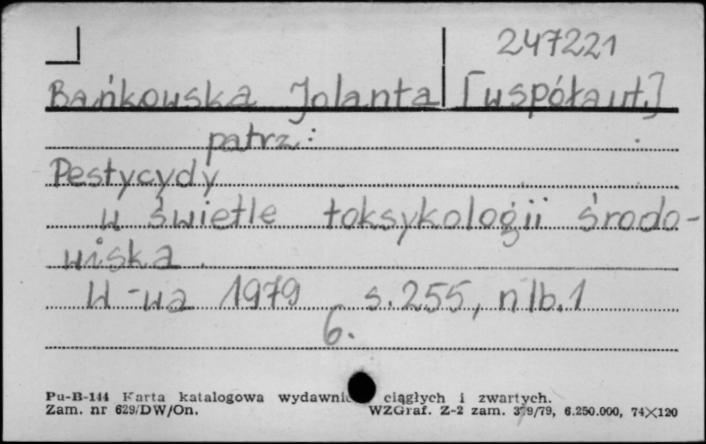 247221
Bańkowska Jolanta [współaut.]
patrz:
Pestycydy
w świetle toksykologii środo-
wiska.
W-wa 1979 s. 255, nlb. 1
6.
Pu-B-144 Karta katalogowa ciągłych i zwartych.
Zam. nr 629/DW/On. WZGraf. Z-2 zam. 379/79, 6.250.000, 74×120